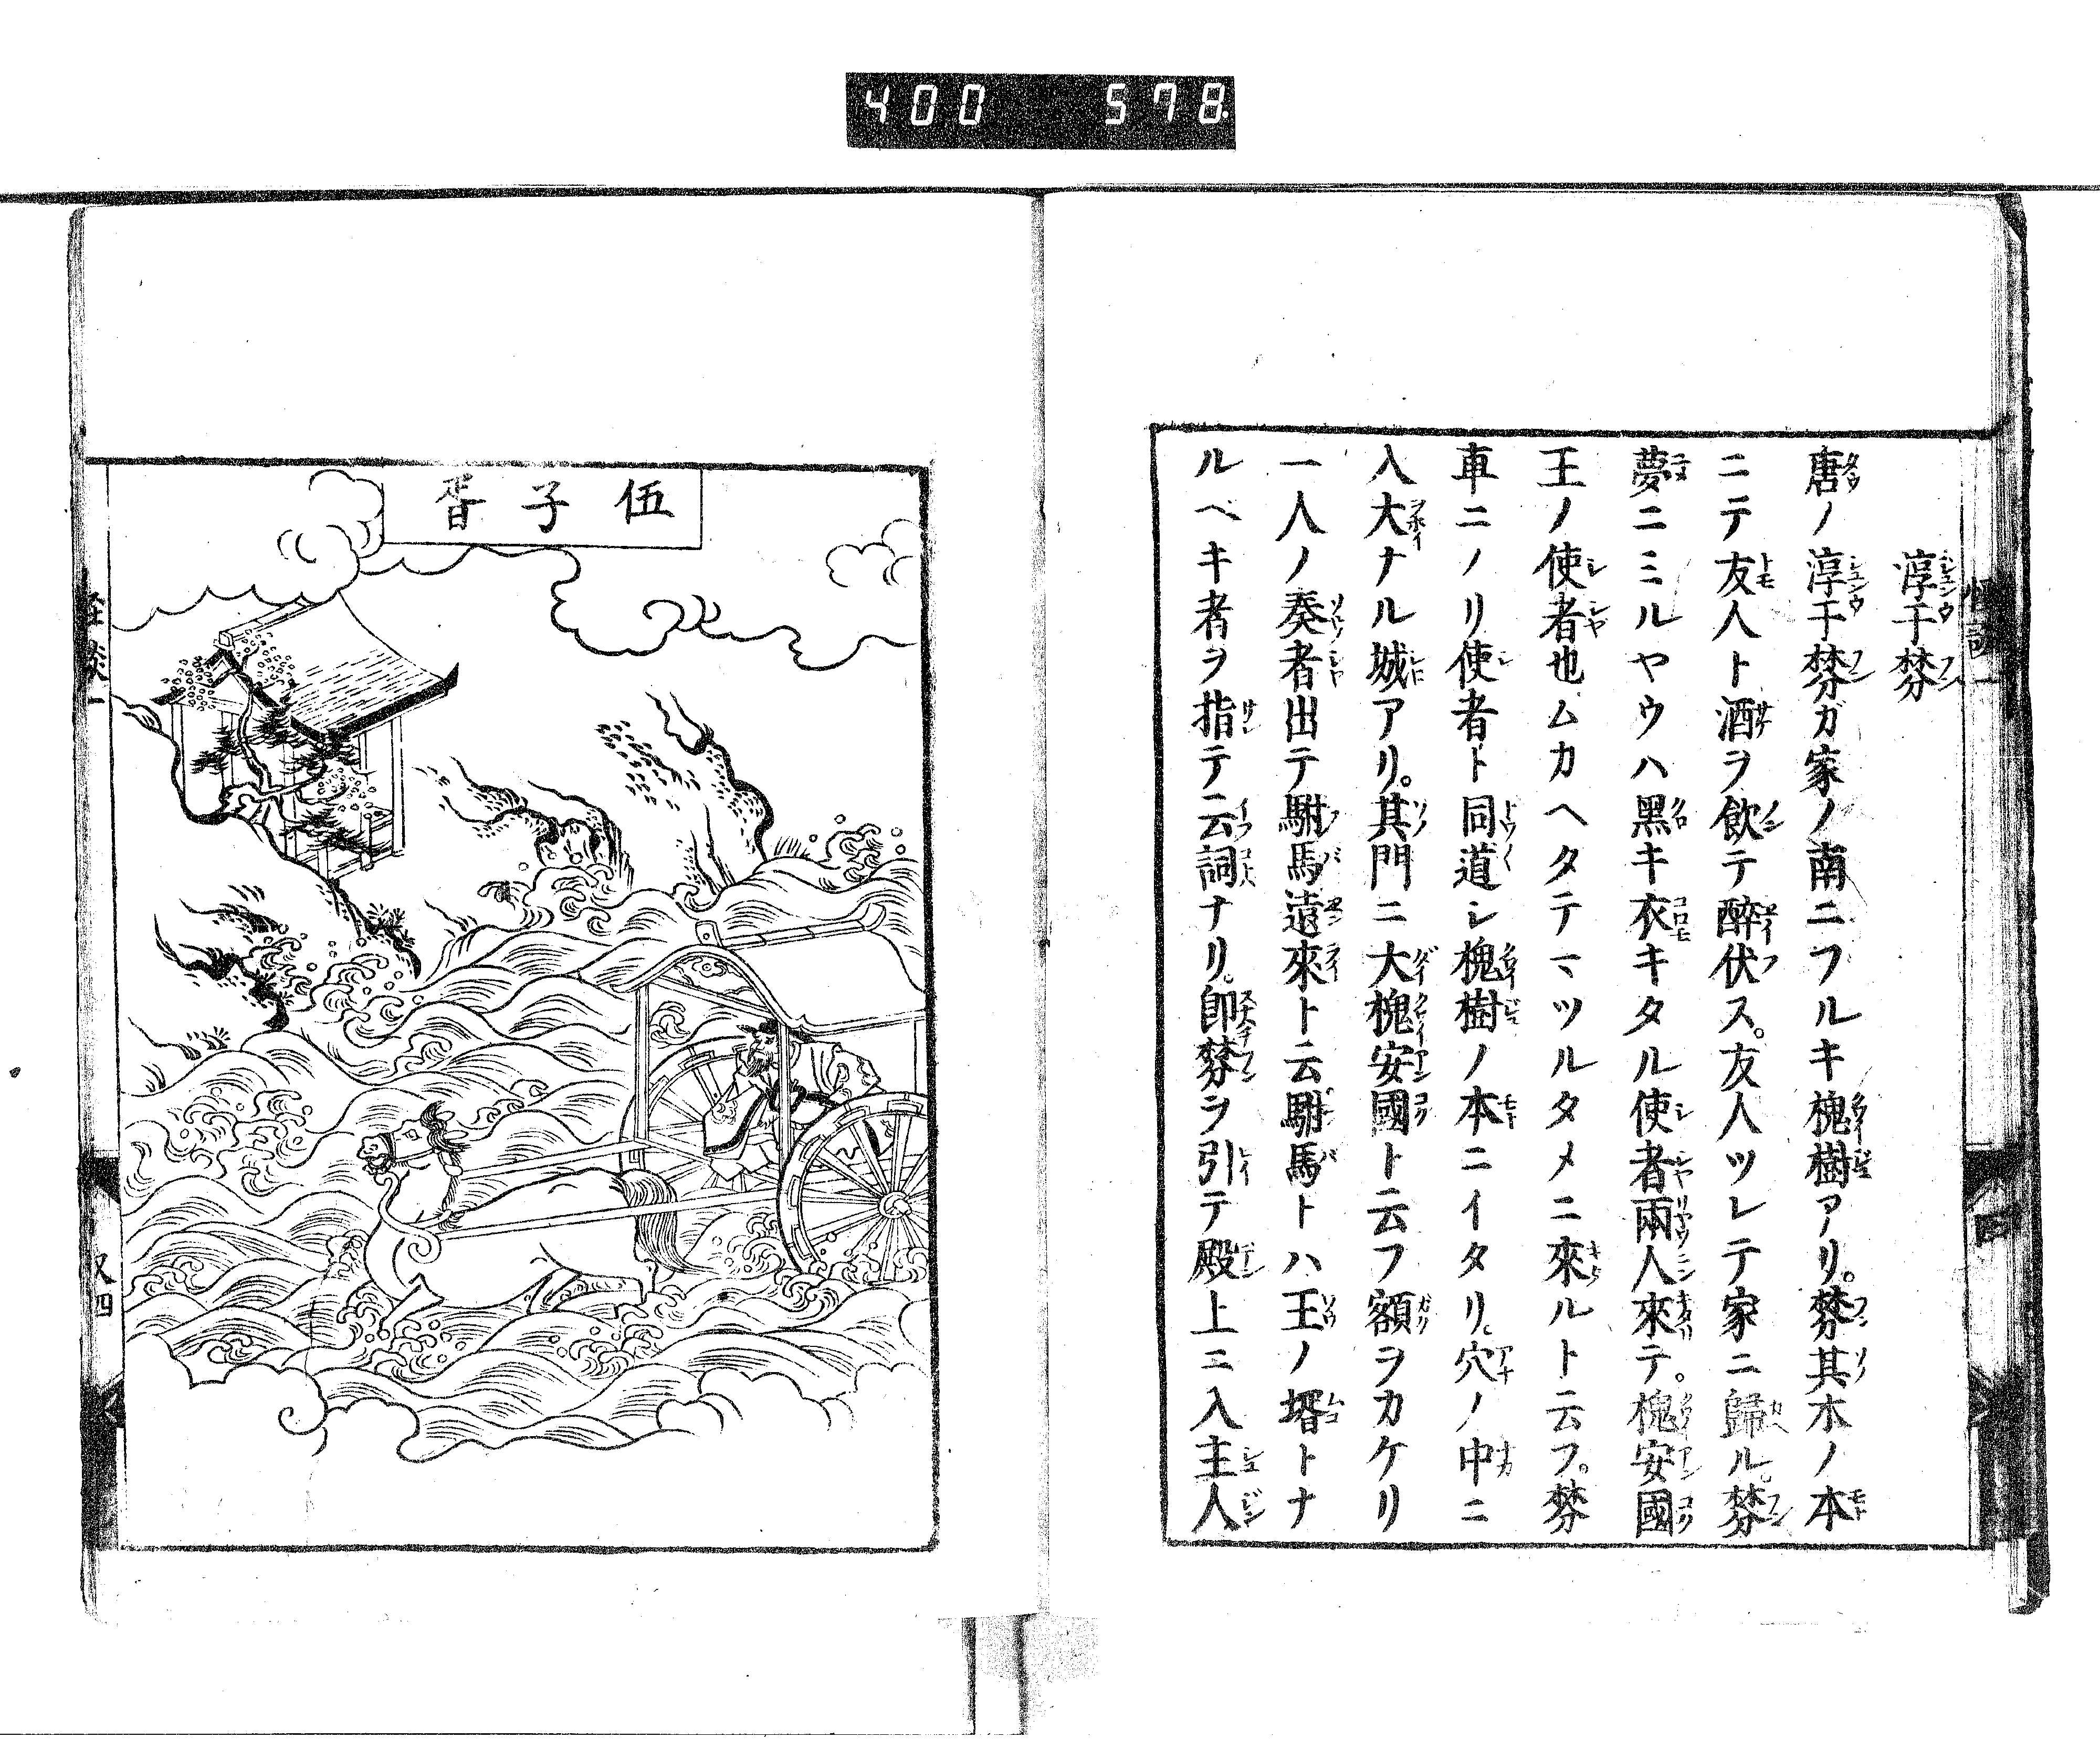 400 578
淳于棼
唐ノ淳于棼ガ家ノ南ニフルキ槐樹アリ。棼其木ノ本
ニテ友人ト酒ヲ飲テ醉伏ス。友人ツレテ家ニ歸ル。棼
夢ニミルヤウハ黑キ衣キタル使者兩人來テ。槐安國
王ノ使者也ムカヘタテマツルタメニ來ルト云フ。棼
車ニノリ使者ト同道シ槐樹ノ本ニイタリ。穴ノ中ニ
入大ナル城アリ。其門ニ大槐安國ト云フ額ヲカケリ
一人ノ奏者出テ駙馬遠來ト云駙馬トハ王ノ壻トナ
ルベキ者ヲ指テ云詞ナリ。卽棼ヲ引テ殿上ニ入主人
伍子胥
怪談一
又四